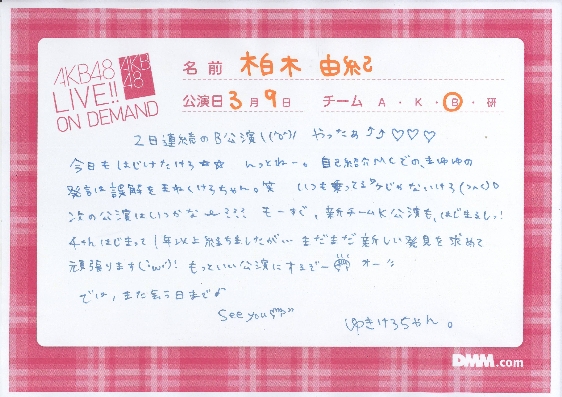 AKB48
LIVE!!
ON DEMAND
AKB
48
名前 柏木 由紀
公演日 3月 9日 チーム A・K・B・研
2日連続のB公演\(^o^)/ やったぁ♪♪♡♡♡
今日もはじけたけろ☆☆ んっとねー。自己紹介MCでの、まゆゆの
発言は誤解をまねくけろちゃん。笑 いつも乗ってる
次の公演はいつかな もーすぐ、新チームK公演も、はじまるしっ!
チームはじまって1年以上経ちましたが… まだまだ新しい発見を求めて
頑張ります(・ω・)! もっといい公演にするぞー オー!!
では、また会う日まで♪
See you
ゆきけろちゃん。
DMM.com